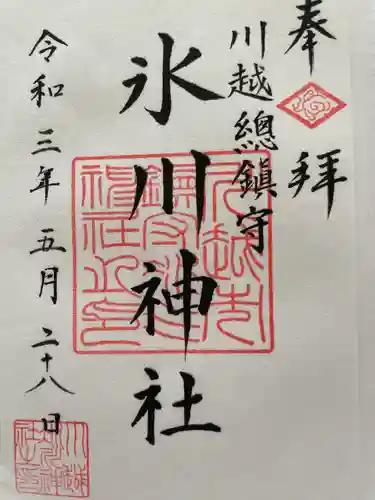 奉拝
川越總鎮守
氷川神社
令和三年五月二十八日